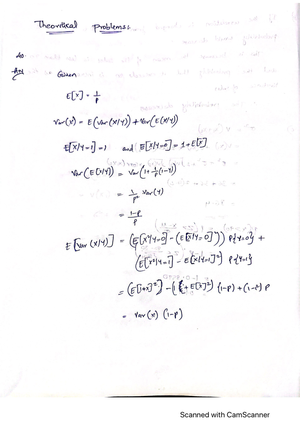 Theoritical Problems:
Given
E[X] = 1/p
Var(X) = E(Var(X/Y)) + Var(E(X/Y))
E[X/Y=1] = 1 and E[X/Y=0] = 1+E[X]
Var(E(X/Y)) = Var(1+1/p(1-Y))
= 1/p² Var(Y)
= 1-p/p
E[Var(X/Y)] = (E[X²/Y=0] - (E[X/Y=0]²)) P{Y=0} +
(E[X²/Y=1] - E[X/Y=1]²) P{Y=1}
= (E[1+X]²) - (1+E[X]²) (1-p) + (1-1²) p
= Var(X) (1-p)
Scanned with CamScanner